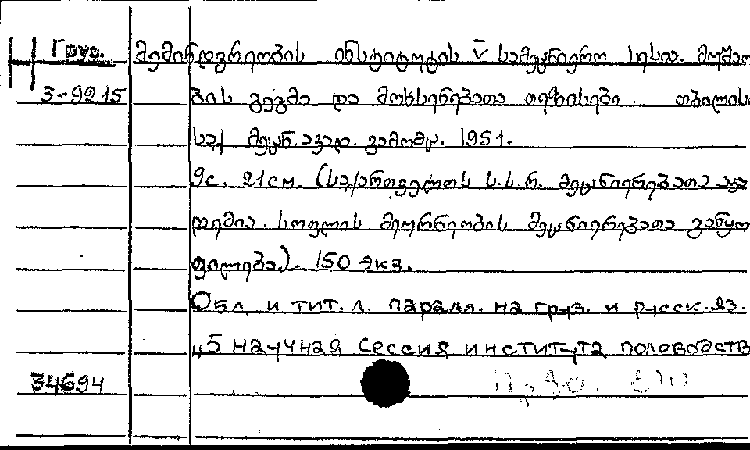 Груз. მემინდვრეობის ინსტიტუტის V სამეცნიერო სესია. მუშაო
3-9215 ბის გეგმა და მოხსენებათა თეზისები. თბილისი
საქ. მეცნ. აკად. გამომც. 1951.
9с. 21см. (საქართველოს ს.ს.რ. მეცნიერებათა აკა
დემია. სოფლის მეურნეობის მეცნიერებათა განყო
ფილება). 150 экз.
Обл. и тит. л. паралл. на груз. и русск. яз.
„5 научная сессия института полеводств
34694